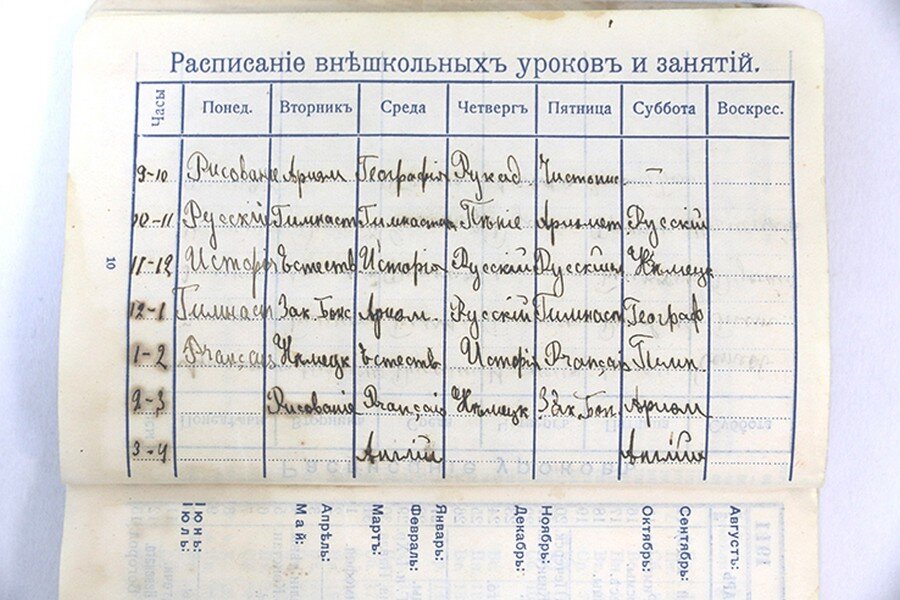 Расписаніе внѣшкольныхъ уроковъ и занятій.
Часы Понед. Вторникъ Среда Четвергъ Пятница Суббота Воскрес.
9-10 Рисование Арифм Географія Рукод Чистопис —
10-11 Русскій Гимнаст Гимнастика Пѣніе Арифмет Русскій
11-12 Истор Естеств Исторія Русскій Русскій Нѣмецк
12-1 Гимнаст Зак. Бож Арифм. Русскій Гимнаст Географ
1-2 Францус Нѣмецк Естеств Исторія Францус Гимн.
2-3 Рисованіе Францус Нѣмецк Зак. Бож. Арифм
3-4 Англій Англій
10
Іюль:
Іюнь:
Май:
Апрѣль:
Мартъ:
Февраль:
Январь:
Декабрь:
Ноябрь:
Октябрь:
Сентябрь:
Августъ:
1911